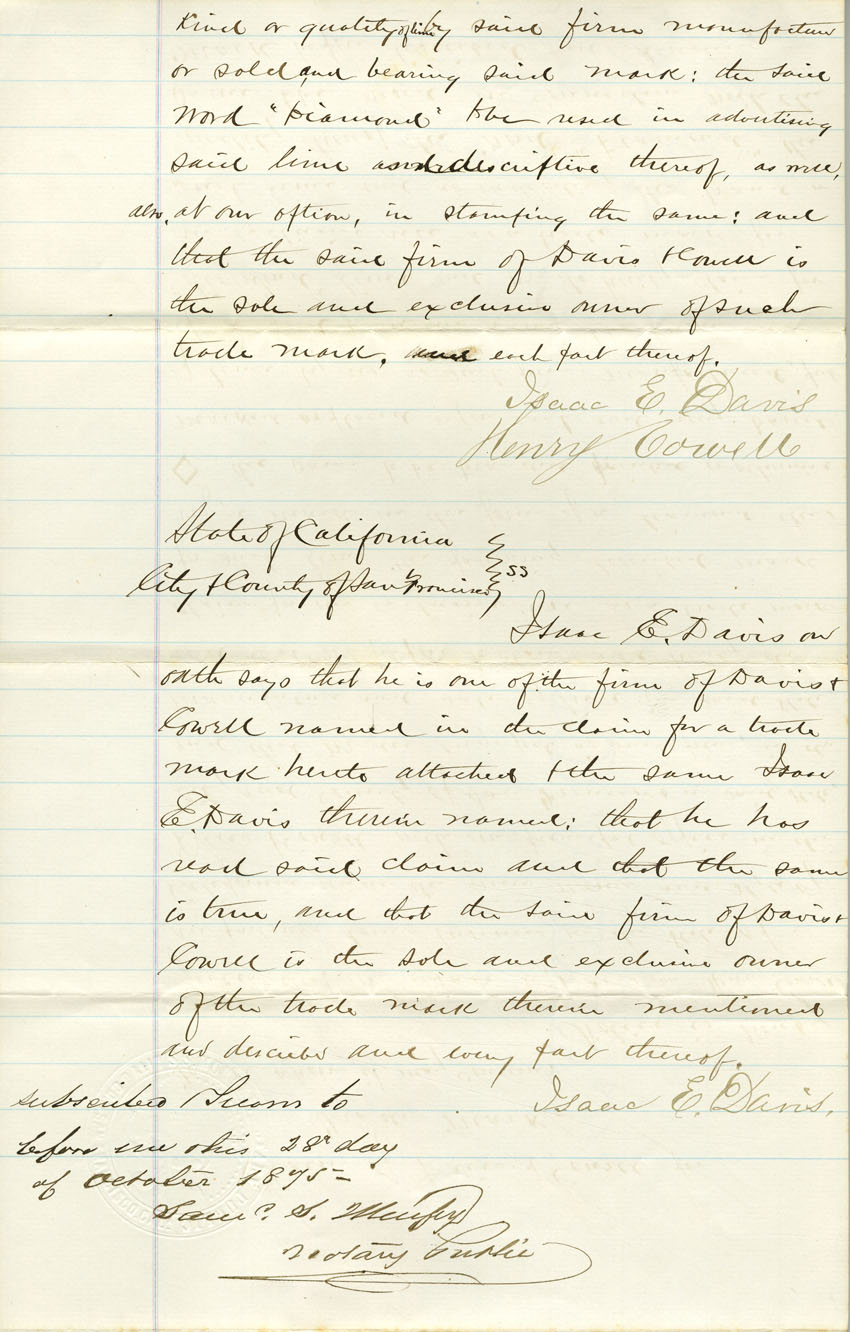 Kind or quality of lime by said firm manufactured
or sold and bearing said mark: the said
word "Diamond" to be used in advertising
said lime and descriptive thereof, as well,
also, at our option, in stamping the same: and
that the said firm of Davis & Cowell is
the sole and exclusive owner of such
trade mark, and each part thereof.
Isaac E. Davis
Henry Cowell
State of California
City & County of San Francisco } ss
Isaac E. Davis on
oath says that he is one of the firm of Davis &
Cowell named in the claim for a trade
mark hereto attached & the same Isaac
E. Davis therein named: that he has
read said claim and that the same
is true, and that the said firm of Davis &
Cowell is the sole and exclusive owner
of the trade mark therein mentioned
and described and every part thereof.
Isaac E. Davis.
Subscribed & Sworn to
before me this 28th day
of October 1875-
Saml. S. Murfey
Notary Public